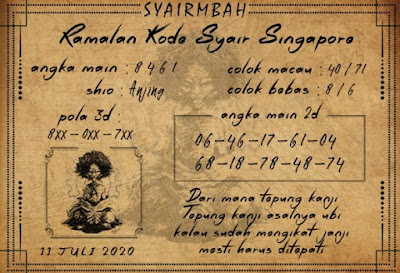 SYAIRMBAH
Ramalan Kode Syair Singapore
angka main : 8 4 6 1
colok macau : 40 / 71
shio : Anjing
colok bebas : 8 / 6
pola 3d :
8xx - 0xx - 7xx
angka main 2d
06 - 46 - 17 - 61 - 04
68 - 18 - 78 - 48 - 74
Dari mana topung kanji
Topung kanji asalnya ubi
kalau sudah mengikat janji
mosti harus ditopati
11 JULI 2020